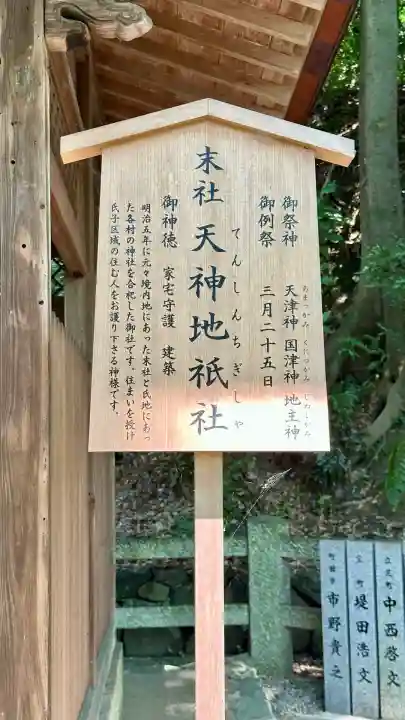 御祭神 天津神 国津神 地主神
あまつかみ くにつかみ じぬしかみ
御例祭 三月二十五日
末社 天神地祇社
てんしんちぎしゃ
御神徳 家宅守護 建築
明治五年に元々境内地にあった末社と氏地にあっ
た各村の神社を合祀した御社です。住まいを授け
氏子区域の住む人をお護り下さる神様です。
中西啓文
堤田浩文
市野貴之